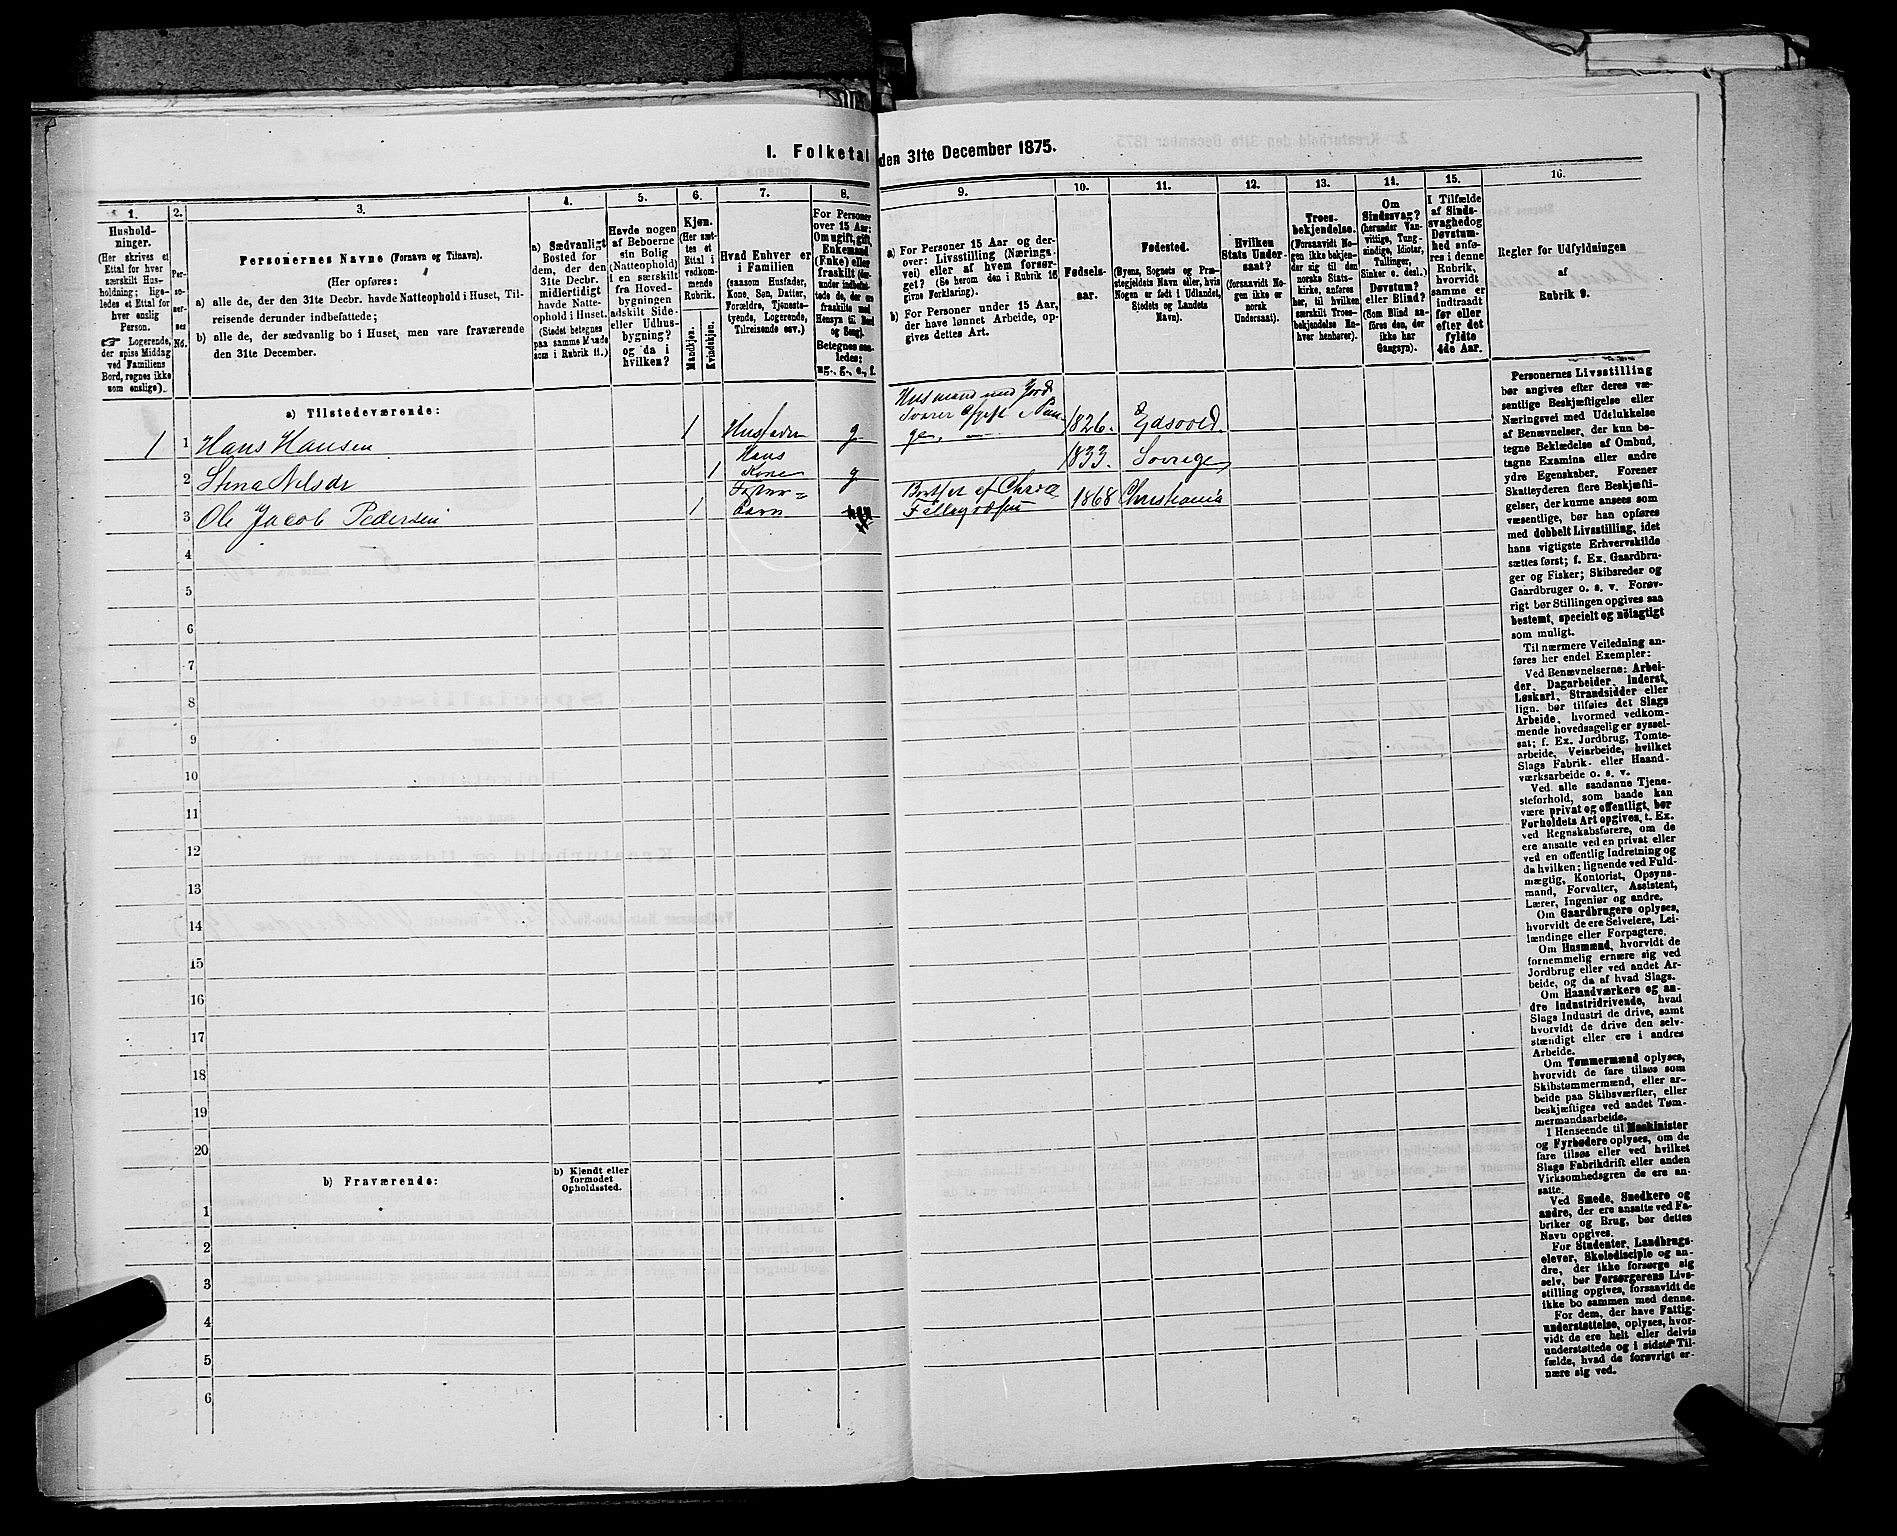 I. Folketal den 31te December 1875.
1. 2. 3. 4. 5. 6. 7. 8. 9. 10. 11. 12. 13. 14. 15. 16.
Hushold-
ninger.
(Her skrives et
Ettal for hver
særskilt Hus-
holdning; lige-
ledes et Ettal for
hver enslig
Person.
☞ Logerende,
der spise Middag
ved Familiens
Bord, regnes ikke
som enslige).
Per-
so-
ner-
nes
No.
Personernes Navne (Fornavn og Tilnavn).
(Her opføres:
a) alle de, der den 31te Decbr. havde Natteophold i Huset, Til-
reisende derunder indbefattede;
b) alle de, der sædvanlig bo i Huset, men vare fraværende
den 31te December.
a) Sædvanligt
Bosted for
dem, der den
31te Decbr.
midlertidigt
havde Natte-
ophold i Huset.
(Stedet betegnes
paa samme Maade
som i Rubrik 11.)
Havde nogen
af Beboerne
sin Bolig
(Natteophold)
i en særskilt
fra Hoved-
bygningen
adskilt Side-
eller Udhus-
bygning?
og da i
hvilken?
Kjøn.
(Her sæt-
tes et
Ettal i
vedkom-
mende
Rubrik.
Mandkjøn.
Kvindekjøn.
Hvad Enhver er
i Familien
(saasom Husfader,
Kone, Søn, Datter,
Forældre, Tjeneste-
tyende, Logerende,
Tilreisende osv.)
For Personer
over 15 Aar:
Om ugift, gift,
Enkemand
(Enke) eller
fraskilt
Betegnes saa-
ledes:
ug., g., e., f.
a) For Personer 15 Aar og der-
over: Livsstilling (Nærings-
vei) eller af hvem forsør-
get? (Se herom den i Rubrik 16
givne Forklaring).
b) For Personer under 15 Aar,
der have lønnet Arbeide, op-
gives dettes Art.
Fødsels-
aar.
Fødested.
(Byens, Sognets og Præ-
stegjeldets Navn eller, hvis
Nogen er født i Udlandet,
Stedets og Landets
Navn).
Hvilken
Stats Under-
saat?
(forsaavidt No-
gen ikke er
norsk
Undersaat).
Troes-
bekjendelse.
(Forsaavidt No-
gen ikke bekjen-
der sig til den
norske Stats-
kirke, anføres
her, til hvilken
særskilt Troes-
bekjendelse En-
hver henhører).
Om
Sindssvag?
(herunder Van-
vittige, Tung-
sindige, Idioter,
Tullinger,
Sinker o. desl.)
Døvstum?
eller Blind?
(Som Blind an-
føres den, der
ikke har
Gangsyn).
I Tilfælde
af Sinds-
svaghed og
Døvstum-
hed anfø-
res i denne
Rubrik,
hvorvidt
samme er
indtraadt
før eller
efter det
fyldte
4de Aar.
Regler for Udfyldningen
af
Rubrik 9.
a) Tilstedeværende:
1 1 Hans Hansen 1 Husfader g Husmand med Jord 1826. Edsvold
2 Stina Nilsdr 1 Hans Kone g 1833. Sverige
3 Ole Jacob Pedersen 1 Foster= barn Bortsat af Chria Fattigvæsen 1868 Christiania
4
5
6
7
8
9
10
11
12
13
14
15
16
17
18
19
20
b) Fraværende:
b) Kjendt eller
formodet
Opholdssted.
1
2
3
4
5
6
Personernes Livsstilling
bør angives efter deres væ-
sentlige Beskjæftigelse eller
Næringsvei med Udelukkelse
af Benævnelser, der kun be-
tegne Beklædelse af Ombud,
tagne Examina eller andre
ydre Egenskaber. Forener
Skatteyderen flere Beskjæfti-
gelser, der kunne ansees som
væsentlige, bør han opføres
med dobbelt Livsstilling, idet
hans vigtigste Erhvervskilde
sættes først; f. Ex. Gaardbru-
ger og Fisker; Skibsreder og
Gaardbruger o. s. v. Forøv-
rigt bør Stillingen opgives saa
bestemt, specielt og nöiagtigt
som muligt.
Til nærmere Veiledning an-
føres her endel Exempler:
Ved Benævnelserne: Arbei-
der, Dagarbeider, Inderst,
Løskarl, Strandsidder eller
lign. bør tilføies det Slags
Arbeide, hvormed vedkom-
mende hovedsagelig er syssel-
sat; f. Ex. Jordbrug, Tomte-
arbeide, Veiarbeide, hvilket
Slags Fabrik- eller Haand-
værksarbeide o. s. v.
Ved alle saadanne Tjene-
steforhold, som baade kan
være privat og offentligt, bør
Forholdets Art opgives, t. Ex.
ved Regnskabsførere, om de
ere ansatte ved en privat eller
ved en offentlig Indretning og
da hvilken; lignende ved Fuld-
mægtig, Kontorist, Opsyns-
mand, Forvalter, Assistent,
Lærer, Ingeniør og andre.
Om Gaardbrugere oplyses,
hvorvidt de ere Selveiere, Lei-
lændinge eller Forpagtere.
Om Husmænd, hvorvidt de
fornemmelig ernære sig ved
Jordbrug eller ved andet Ar-
beide, og da af hvad Slags.
Om Haandværkere og an-
dre Industridrivende, hvad
Slags Industri de drive, samt
hvorvidt de drive den selv-
stændigt eller ere i andres
Arbeide.
Om Tømmermænd oplyses,
hvorvidt de fare tilsøs som
Skibstømmermænd, eller ar-
beide paa Skibsværfter, eller
beskjæftiges ved andet Tøm-
mermandsarbeide.
I Henseende til Maskinister
og Fyrbødere oplyses, om de
fare tilsøs eller ved hvilket
Slags Fabrikdrift eller anden
Virksomhedsgren de ere an-
satte.
Ved Smede, Snedkere og
andre, der ere ansatte ved Fa-
briker og Brug, bør dettes
Navn opgives.
For Studenter, Landbrugs-
elever, Skoledisciple og an-
dre, der ikke forsørge sig
selv, bør Forsørgerens Livs-
stilling opgives, forsaavidt de
ikke bo sammen med denne.
For dem, der have Fattig-
understøttelse, oplyses, hvor-
vidt de ere helt eller delvis
understøttede og i sidste Til-
fælde, hvad de forøvrigt er-
nære sig ved.